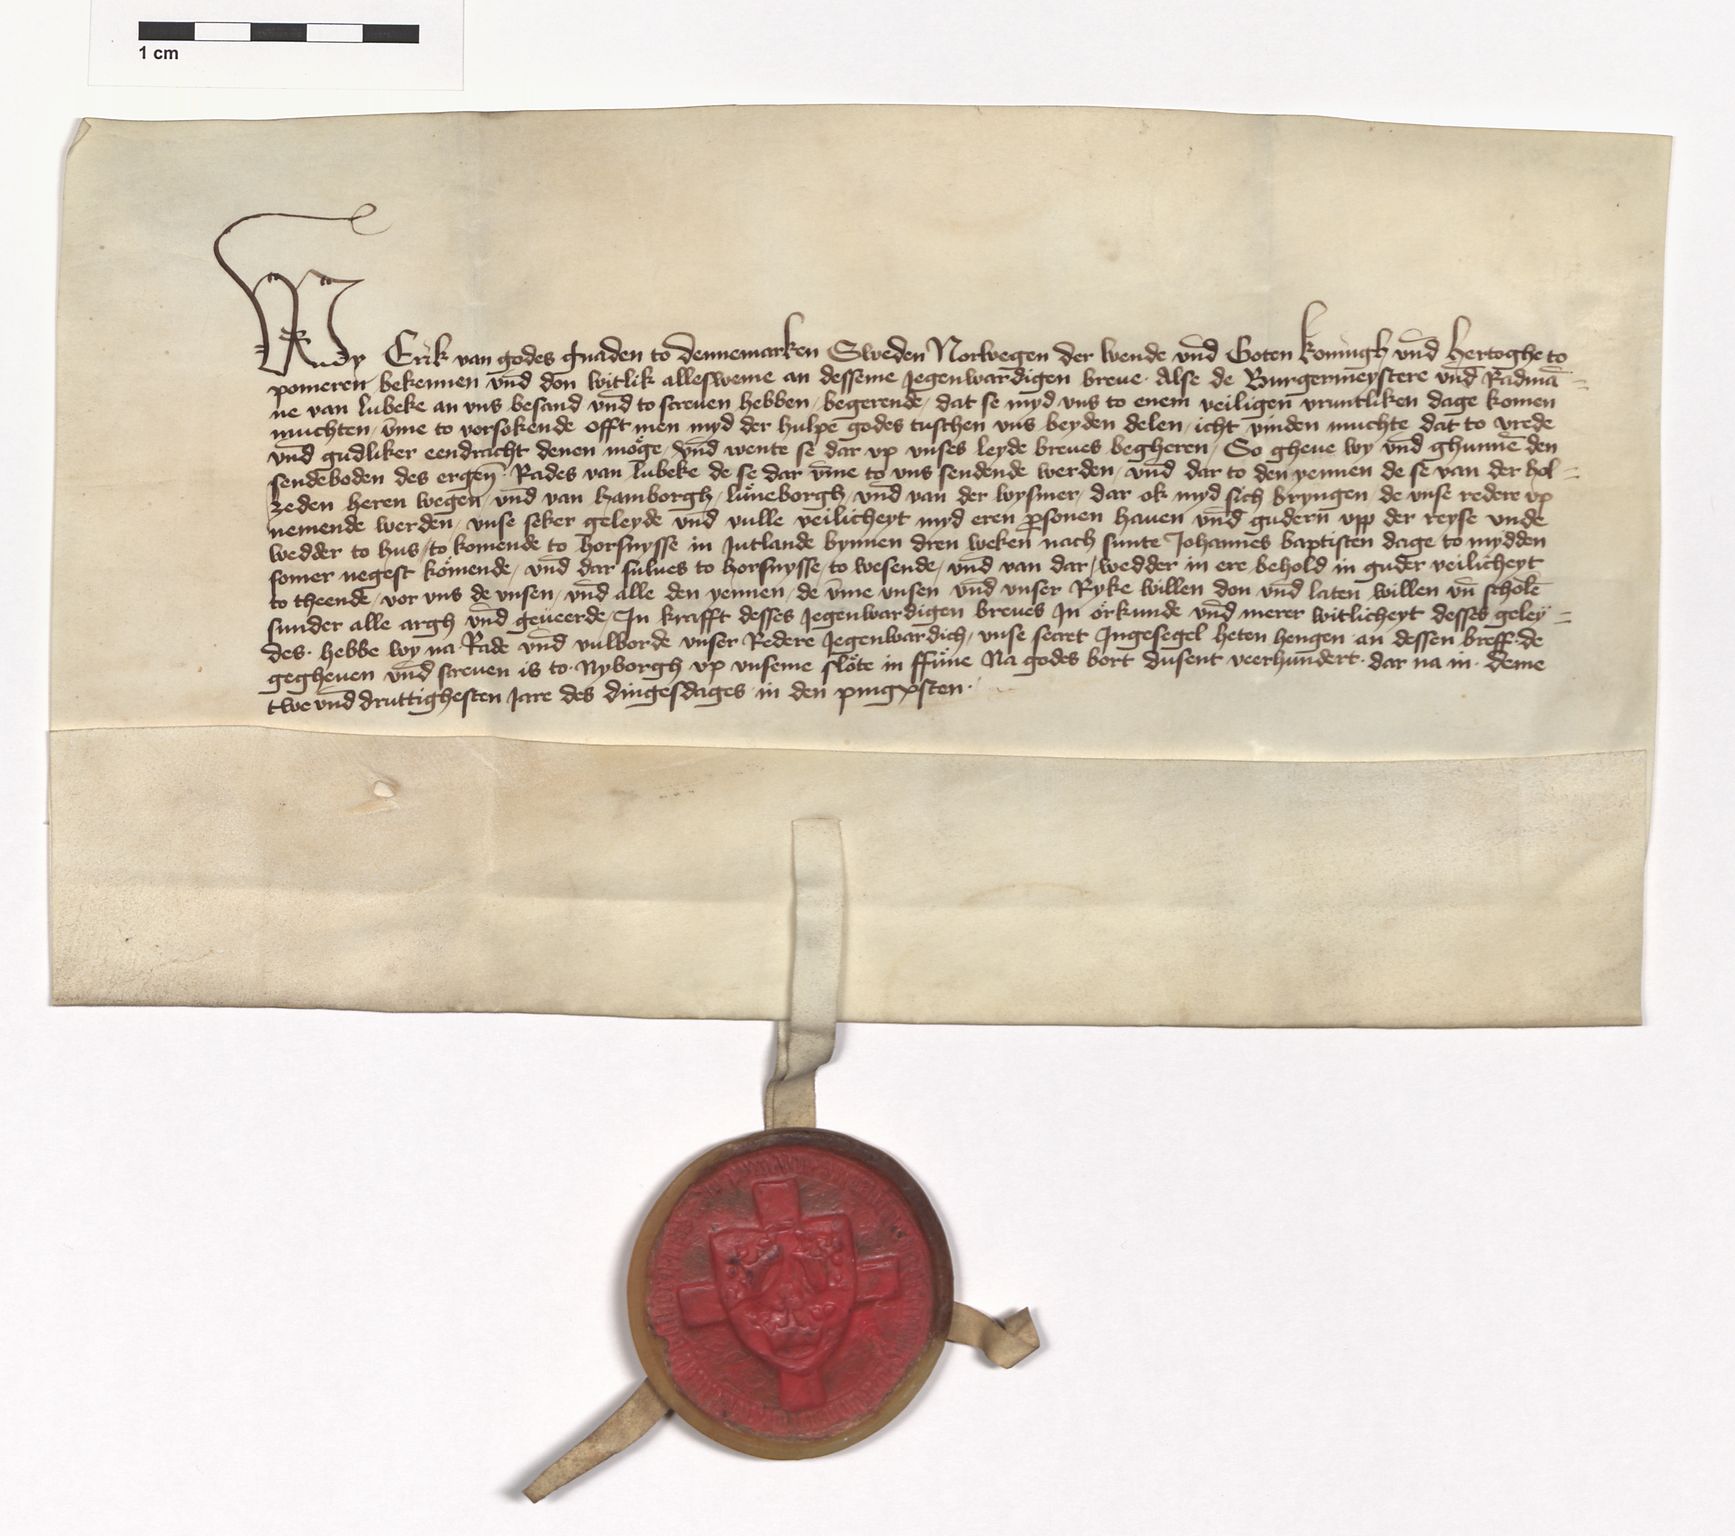 1 cm
Wy Erik van godes gnaden to dennemarken Sweden Norwegen der wende vnd Goten koningh vnd Hertoghe to
pomeren bekennen vnd don witlik allesweme an desseme Jegenwardigen breue. Alse de Burgermeystere vnd Radmā=
ne van lubeke an vns besand vnd to screuen hebben / begerende / dat se myd vns to enem veiligen vruntliken dage komen
muchten / vm̄e to vorsokende offt men myd der hulpe godes tuschen vns beyden delen / icht vinden muchte dat to vrede
vnd gudliker eendracht denen moͤge / Vnd wente se dar vp vnses leyde breues begheren / So gheue wy vnd ghunnē den
sendeboden des ergen̄. Rades van lubeke de se dar vm̄e to vns sendende werden / vnd dar to den yennen de se van der hol=
zeden heren wegen vnd van hamborgh / luͤneborgh / vnd van der wysmer / dar ok myd sich bryngen / de vnse redere vp
nemende werden / vnse seker geleyde vnd vulle veilicheyt myd eren ꝑsonen hauen vnd gudern vpp der reyse vnde
wedder to hus / to komende to horsnysse in Jutlande bynnen dren weken nach sunte Johannes baptisten dage to mydden
somer negest komende / vnd dar sulues to horsnysse / to wesende / vnd van dar / wedder in ere behold in guder veilicheyt
to theende / vor vns de vnsen / vnd alle den yennen / de vm̄e vnsen vnd vnser Ryke willen don vnd laten willen vn̄ scholē
sunder alle argh vnd geueerde / In krafft desses Jegenwardigen breues In orkunde vnd merer witlicheyt desses geley=
des. hebbe wy na Rade vnd vulborde vnser Redere Jegenwardich / vnse secret Ingesegel heten hengen an dessen breff. de
gegheuen vnd screuen is to. Nyborgh vp vnseme sloͤte in ffuͤne Na godes bort dusent veerhundert. dar na in. deme
twe vnd druttighesten Jare des dingesdages in den pingxsten.